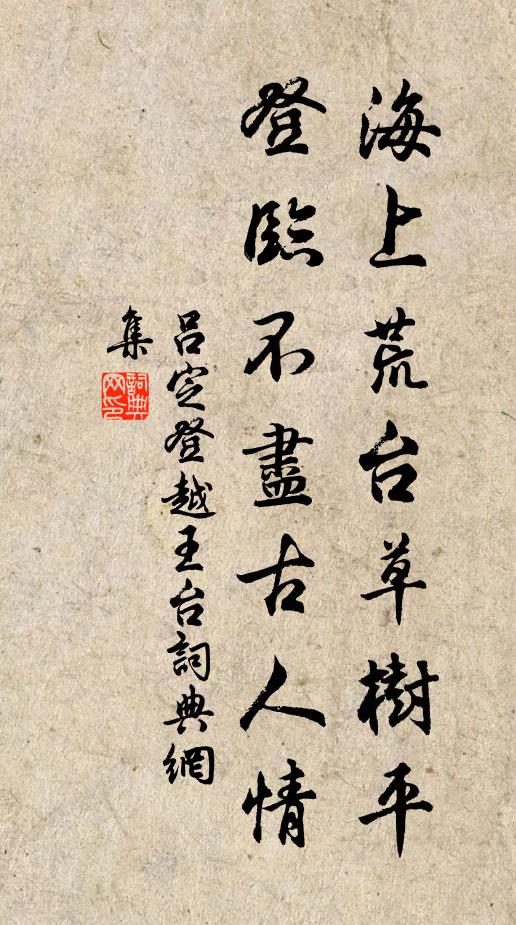 海上荒台草樹平
登臨不盡古人情
吕定登越王台詞典網
集
詞典
网印